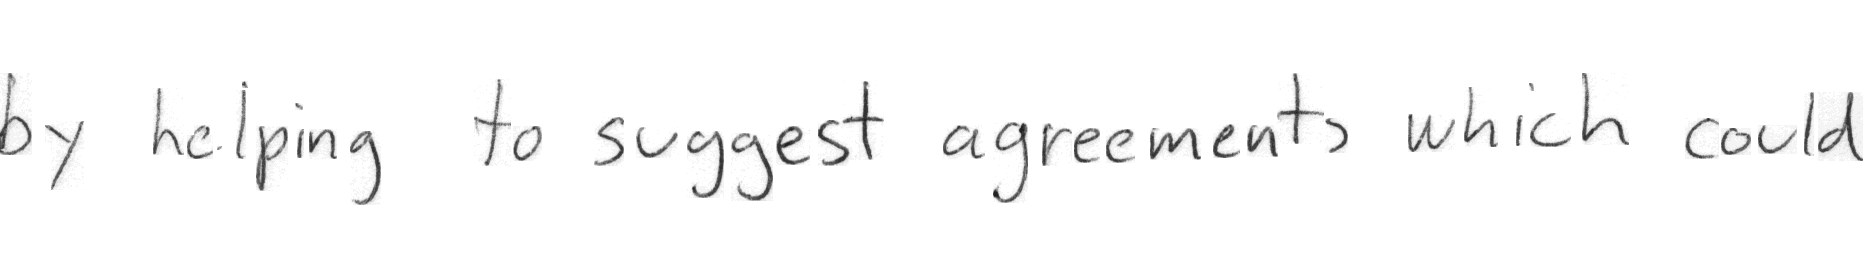 by helping to suggest agreements which could